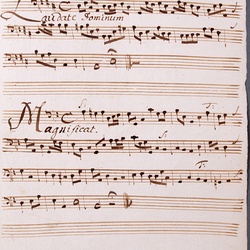 Laudate Dominum
Magnificat.